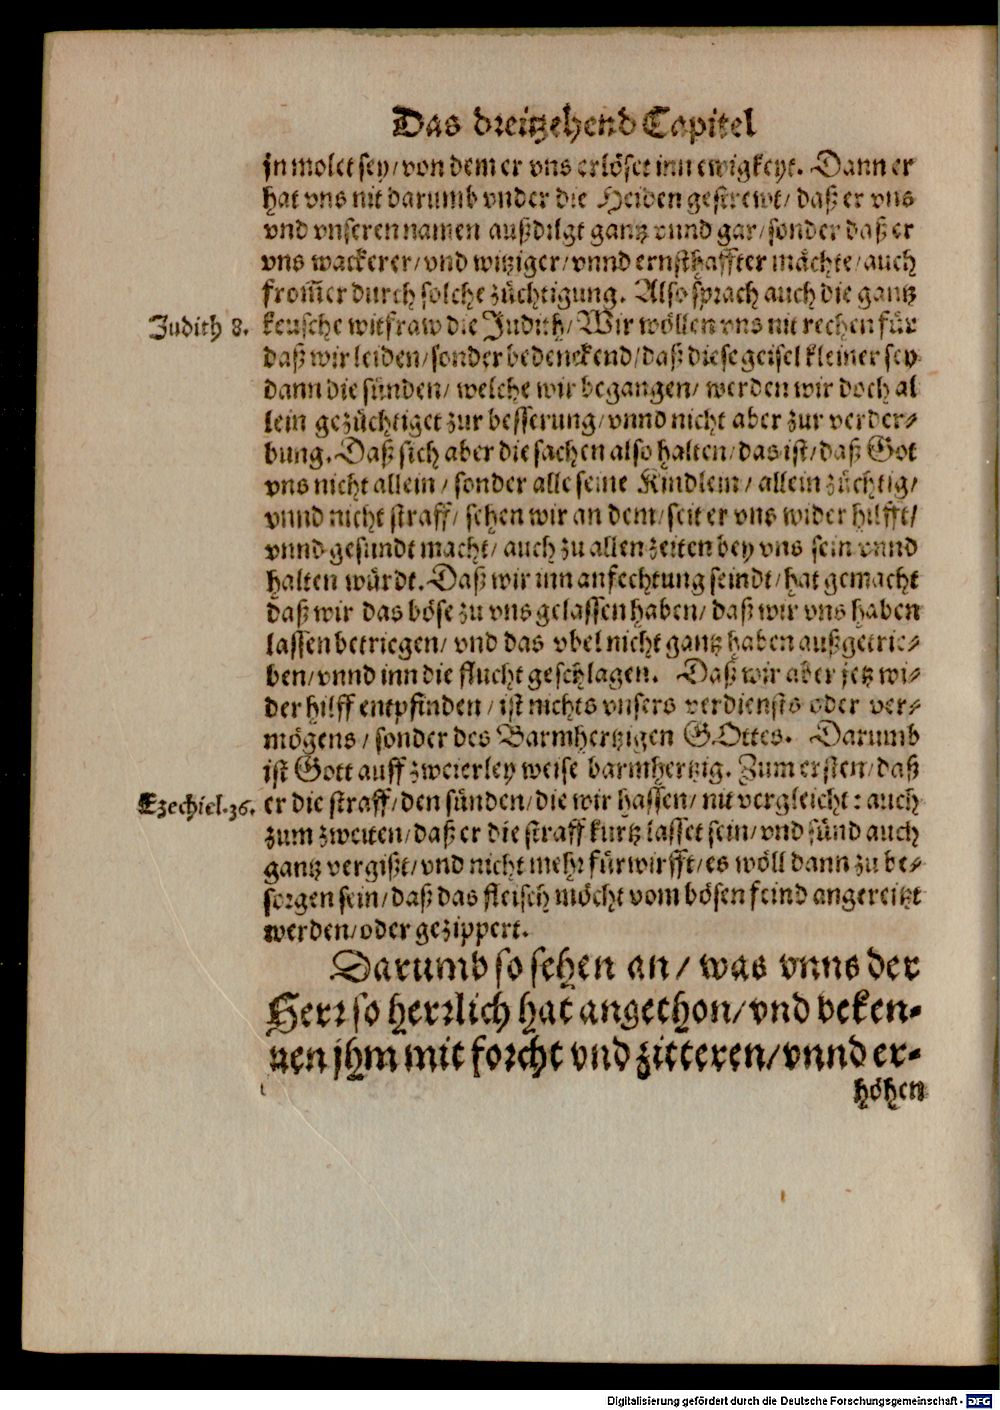 Das dreitzehend Capitel
jn molet sey/ von dem er vns erlöset inn ewigkeyt. Dann er
hat vns nit darumb vnder die Heiden gestrewt/ daß er vns
vnd vnseren namen außdilgt gantz vnnd gar/ sonder daß er
vns wackerer/ vnd witziger/ vnnd ernsthaffter mächte/ auch
from̃er durch solche züchtigung. Also sprach auch die gantz
Judith 8. keusche witfraw die Judith/ Wir wöllen vns nit rechen für
daß wir leiden/ sonder bedenckend/ daß diese geisel kleiner sey
dann die sünden/ welche wir begangen/ werden wir doch al
lein gezüchtiget zur besserung/ vnnd nicht aber zur verder⸗
bung. Daß sich aber die sachen also halten/ das ist/ daß Got
vns nicht allein/ sonder alle seine Kindlein/ allein züchtig/
vnnd nicht straff/ sehen wir an dem/ seit er vns wider hilfft/
vnnd gesundt macht/ auch zu allen zeiten bey vns sein vnnd
halten würdt. Daß wir inn anfechtung seindt/ hat gemacht
daß wir das böse zu vns gelassen haben/ daß wir vns haben
lassen betriegen/ vnd das vbel nicht gantz haben außgetrie⸗
ben/ vnnd inn die flucht geschlagen. Daß wir aber jetz wi⸗
der hilff entpfinden/ ist nichts vnsers verdiensts oder ver⸗
mögens/ sonder des Barmhertzigen GOttes. Darumb
ist Gott auff zweierley weise barmhertzig. Zum ersten/ daß
Ezechiel.36. er die straff/ den sünden/ die wir hassen/ nit vergleicht: auch
zum zweiten/ daß er die straff kurtz lasset sein/ vnd sünd auch
gantz vergißt/ vnd nicht mehr fürwirfft/ es wöll dann zu be⸗
sorgen sein/ daß das fleisch möcht vom bösen feind angereitzt
werden/ oder gezippert.
Darumb so sehen an/ was vnns der
Herr so herrlich hat angethon/ vnd beken⸗
nen jhm mit forcht vnd zitteren/ vnnd er⸗
höhen
Digitalisierung gefördert durch die Deutsche Forschungsgemeinschaft - DFG